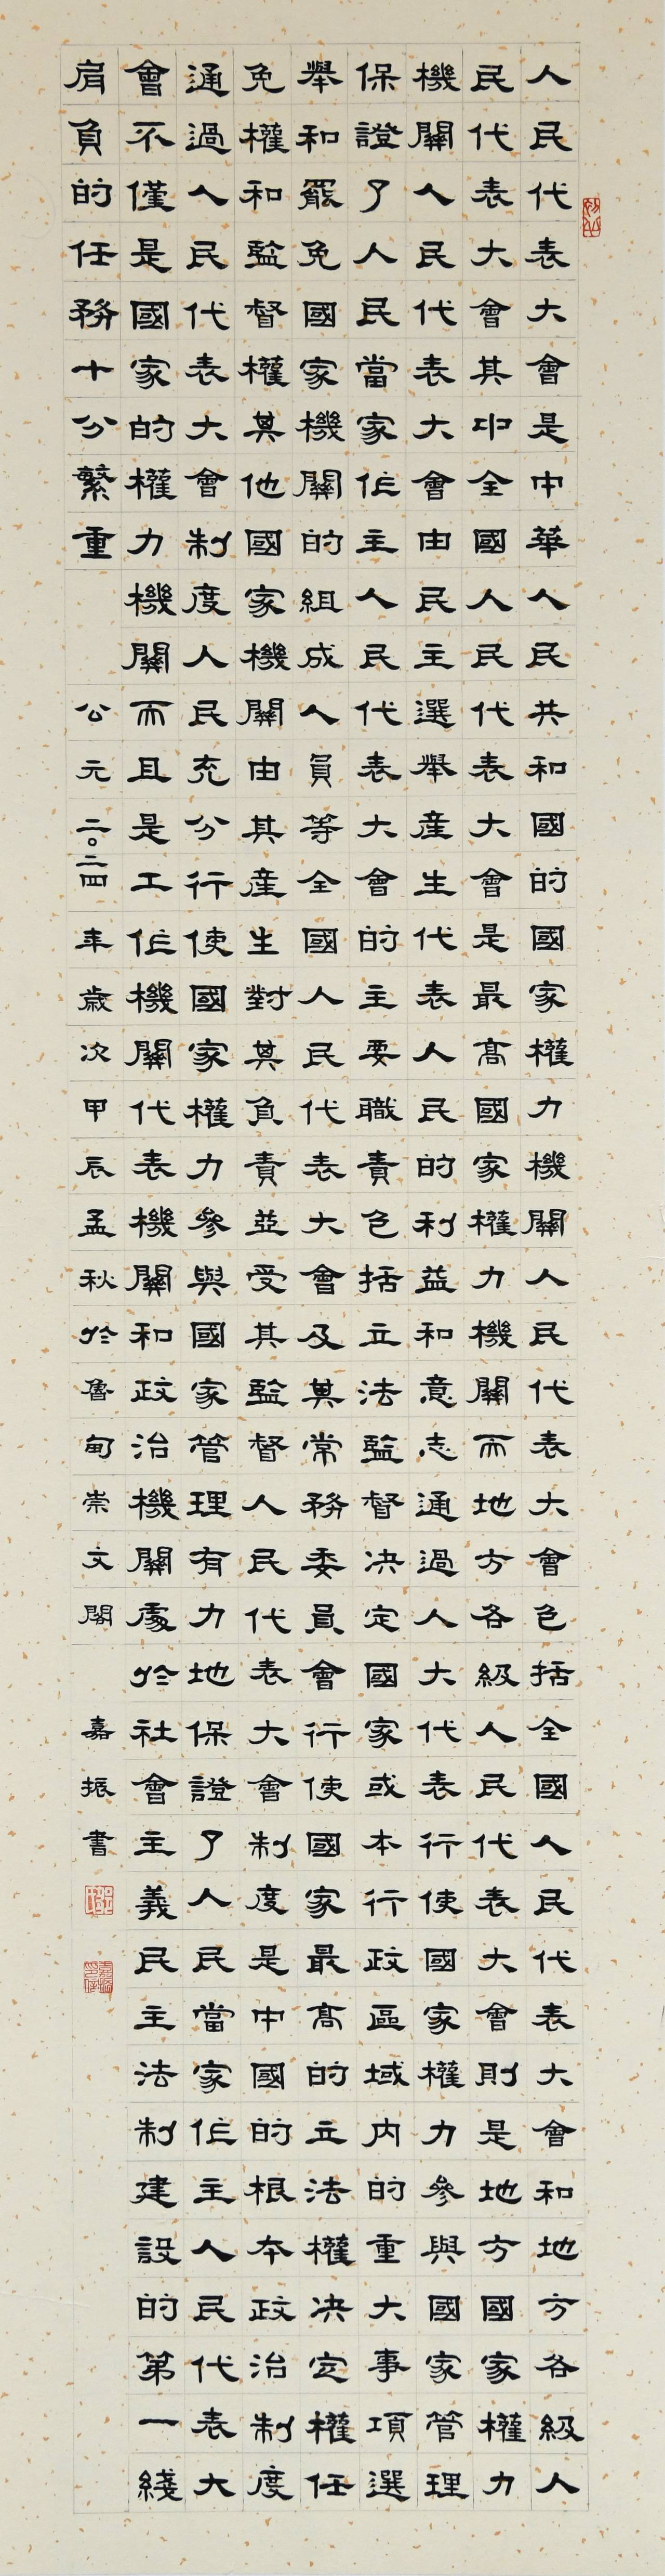 人民代表大會是中華人民共和國的國家權力機關人民代表大會包括全國人民代表大會和地方各級人
民代表大會其中全國人民代表大會是最高國家權力機關而地方各級人民代表大會則是地方國家權力
機關人民代表大會由民主選舉產生代表人民的利益和意志通過人大代表行使國家權力參與國家管理
保證了人民當家作主人民代表大會的主要職責包括立法監督決定國家或本行政區域內的重大事項選
舉和罷免國家機關的組成人員等全國人民代表大會及其常務委員會行使國家最高的立法權決定權任
免權和監督權其他國家機關由其產生對其負責並受其監督人民代表大會制度是中國的根本政治制度
通過人民代表大會制度人民充分行使國家權力參與國家管理有力地保證了人民當家作主人民代表大
會不僅是國家的權力機關而且是工作機關代表機關和政治機關處於社會主義民主法制建設的第一綫
肩負的任務十分繁重
公元二〇二四年歲次甲辰孟秋於魯甸崇文閣 嘉振書